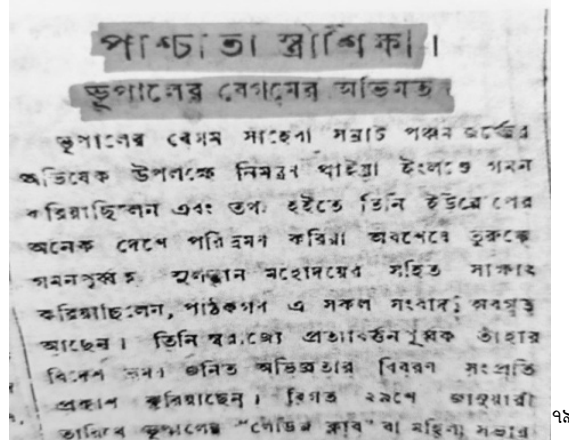 পাশ্চাত্য স্ত্রীশিক্ষা।
ভূপালের বেগমের অভিমত।
ভূপালের বেগম সাহেবা সম্রাট পঞ্চম জর্জের
অভিষেক উপলক্ষে নিমন্ত্রণ পাইয়া ইংলণ্ডে গমন
করিয়াছিলেন এবং তথা হইতে তিনি ইউরোপের
অনেক দেশে পরিভ্রমণ করিয়া অবশেষে তুরুস্কে
গমনপূর্ব্বক সুলতান মহোদয়ের সহিত সাক্ষাৎ
করিয়াছিলেন, পাঠকগণ এ সকল সংবাদ অবগত
আছেন। তিনি স্বরাজ্যে প্রত্যাবর্ত্তনপূর্ব্বক তাঁহার
বিদেশ ভ্রমণ জনিত অভিজ্ঞতার বিবরণ সংপ্রতি
প্রকাশ করিয়াছেন। বিগত ২৯শে জানুয়ারী
তারিখে ভূপালের "লেডিজ ক্লাব" বা মহিলা সভার
৭৯